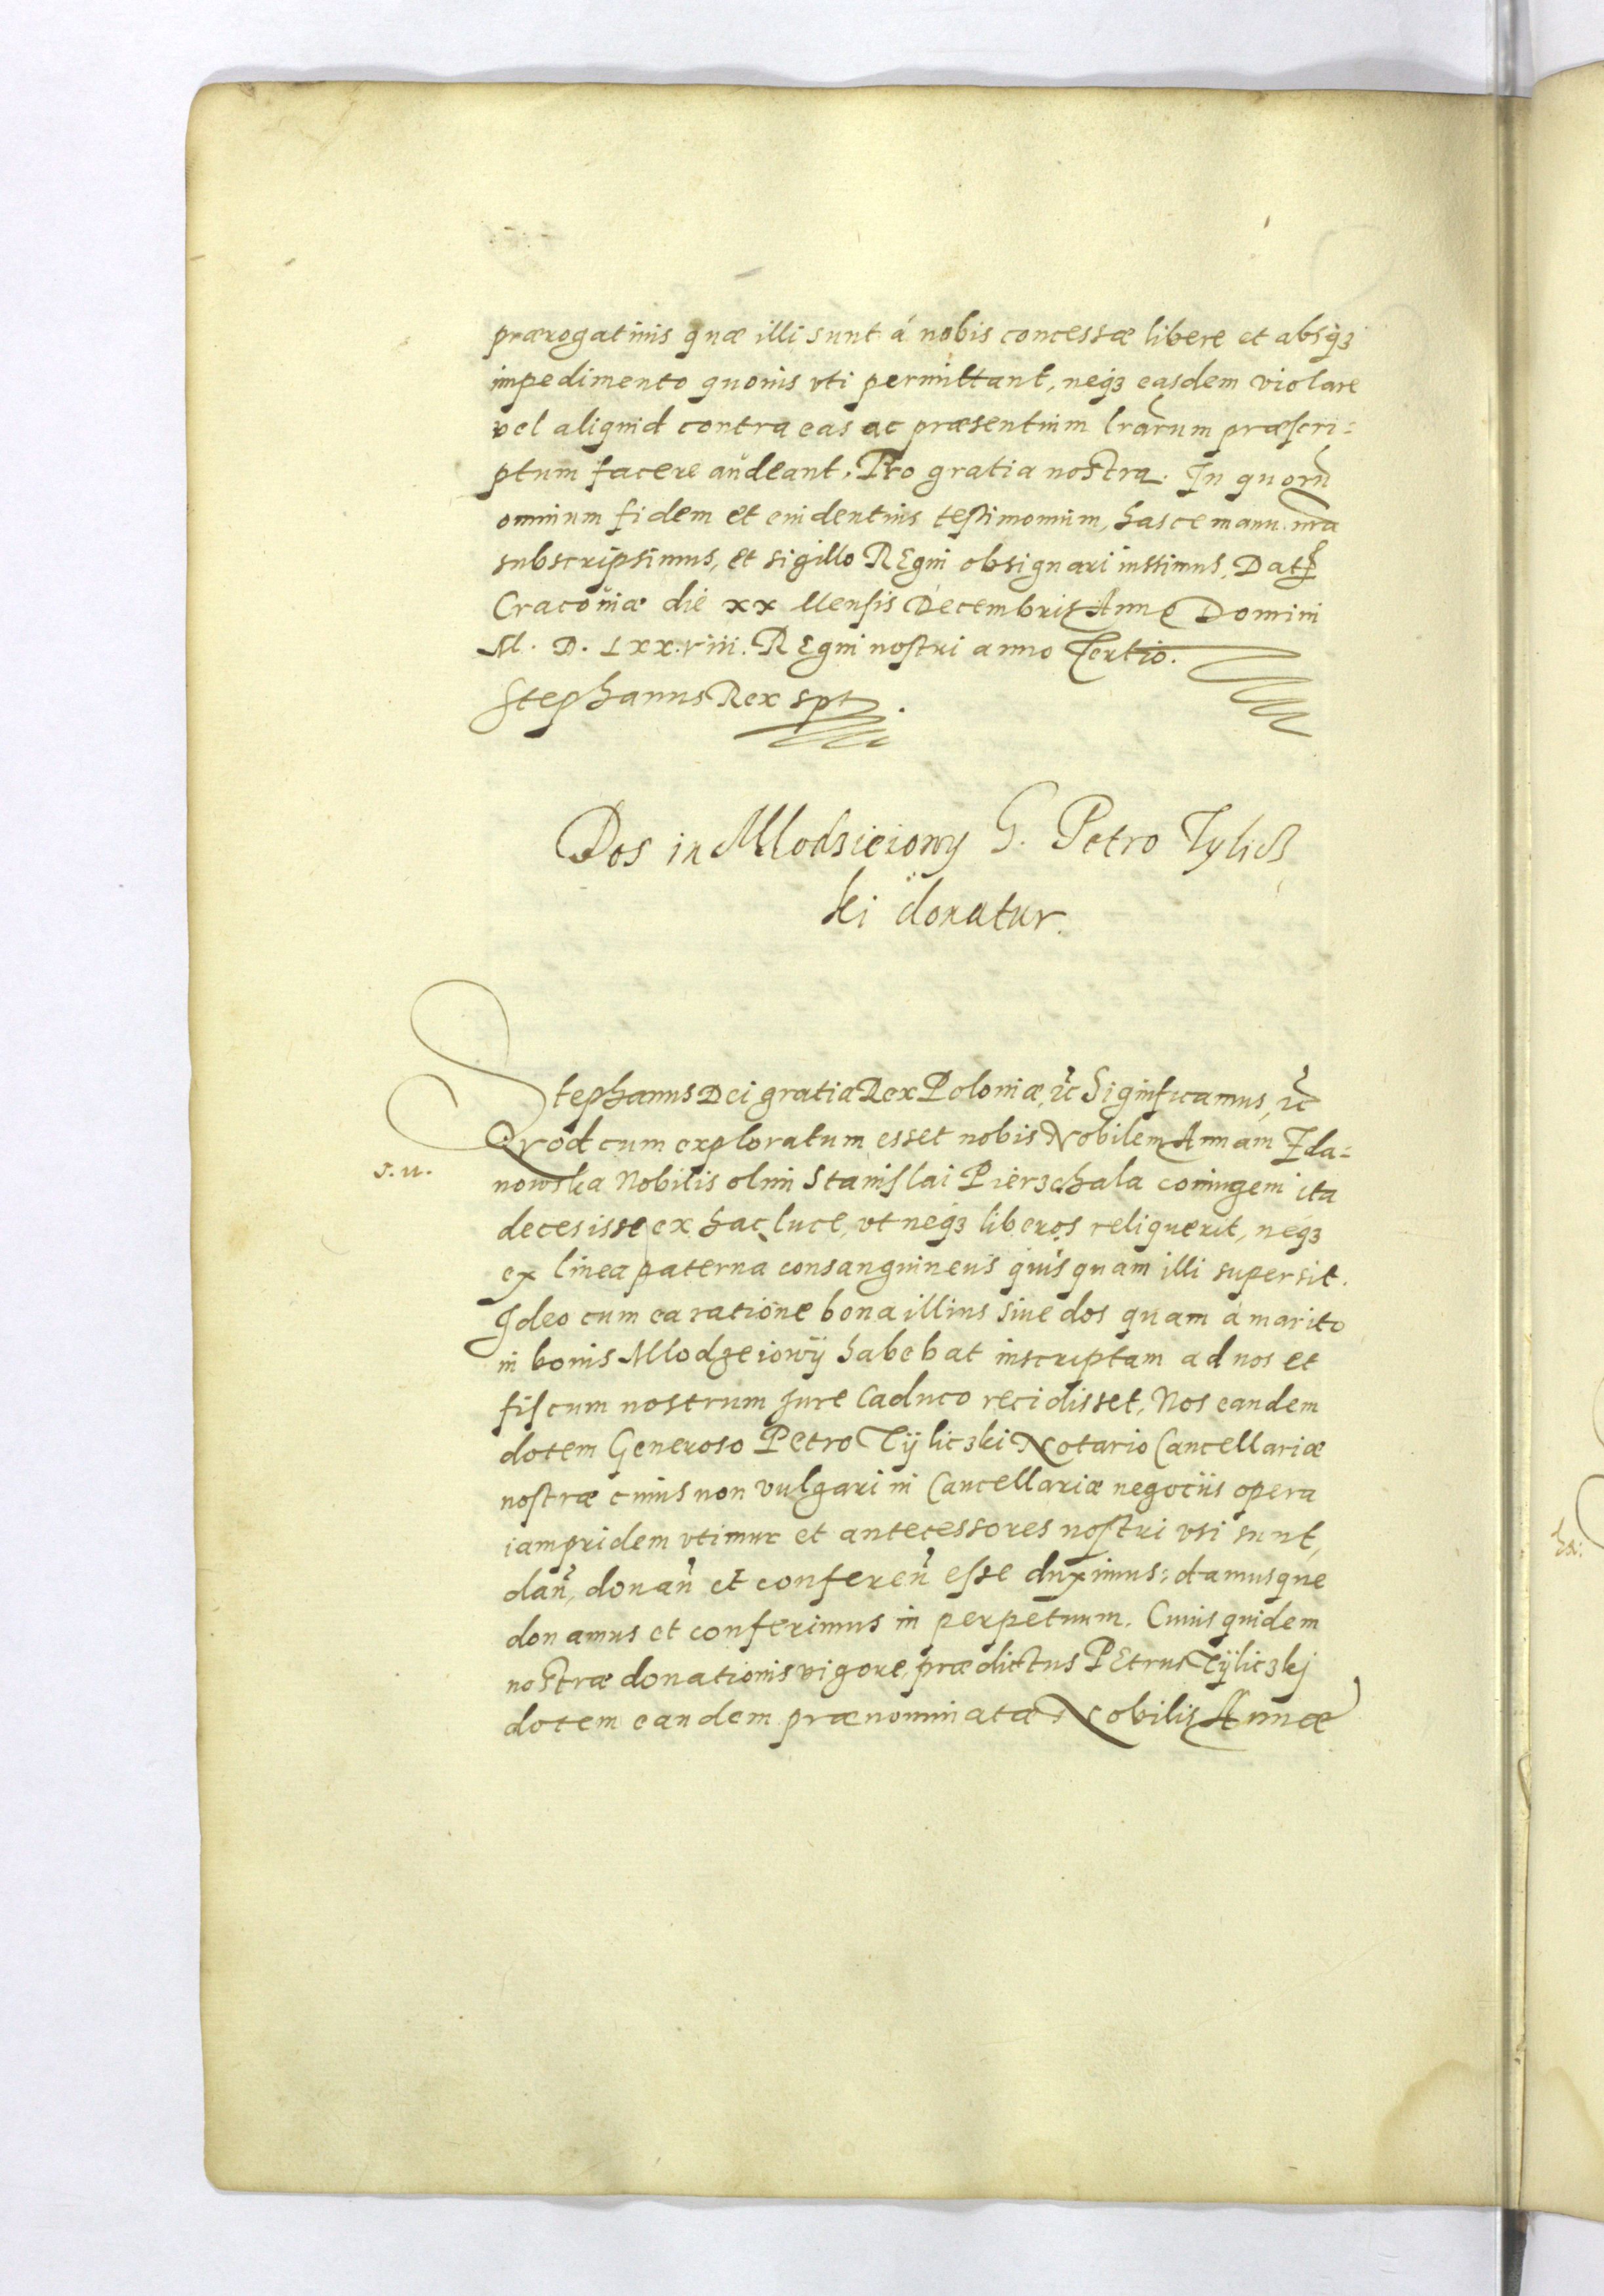 prærogativis quæ illi sunt á nobis concessæ libere et absq3
impedimento quovis vti permittant, neq3 easdem violare
vel aliquid contra eas ac præsentium lrarum præscri=
ptum facere audeant. Pro gratia nostra. In quorū
omnium fidem et evidentius testimonium, hasce manu nrā
subscripsimus, et sigillo REgni obsignari iussimus. Dat
Cracoviæ die xx Mensis Decembris Anno Domini
M. D. Lxx.viii. REgni nostri anno Tertio.
Stephanus Rex spt.
Dos in Mlodzieiowy G. Petro Tylicz
ki donatur.
Stephanus Dei gratia Rex Poloniæ, ꝛc Significamus, ꝛc
Quod cum exploratum esset nobis Nobilem Annam Zda=
s. u.
nowska Nobilis olim Stanislai Pierzchala coniugem ita
decesisse ex hac luce, vt neq3 liberos reliquerit, neq3
ex linea paterna consanguineus quisquam illi supersit.
Ideo cum ea ratione bona illius siue dos quam a marito
in bonis Mlodzeiowÿ habebat inscriptam ad nos et
fiscum nostrum Jure Caduco recidisset, Nos eandem
dotem Generoso Petro Tÿliczki Notario Cancellariæ
nostræ cuius non vulgari in Cancellariæ negotiis opera
iampridem vtimur et antecessores nostri vsi sunt,
dan̄, donan̄ et conferen̄ esse duximus: damusque
donamus et conferimus in perpetuum. Cuius quidem
nostræ donationis vigore, prædictus PEtrus Tÿliczkj
dotem eandem prænominatæ Nobilis Annæ